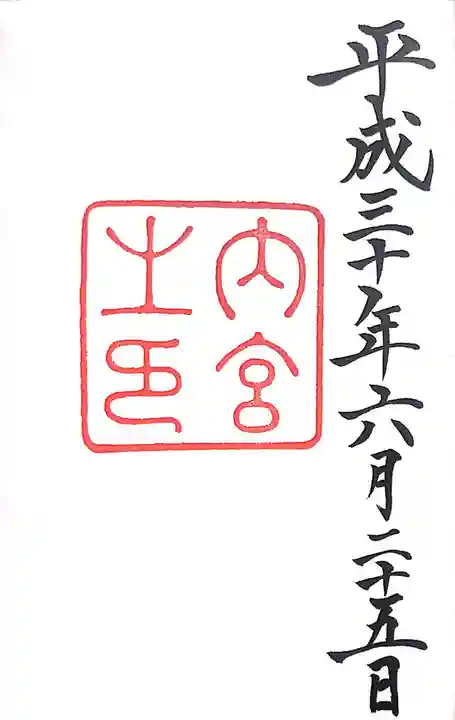 平成三十年六月二十五日
内宮
之印